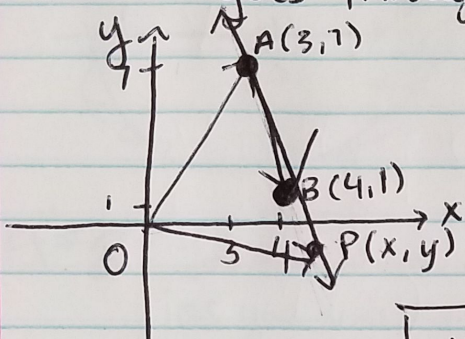 y
A(3,7)
7
B(4,1)
1
x
O
3
4
P(x,y)